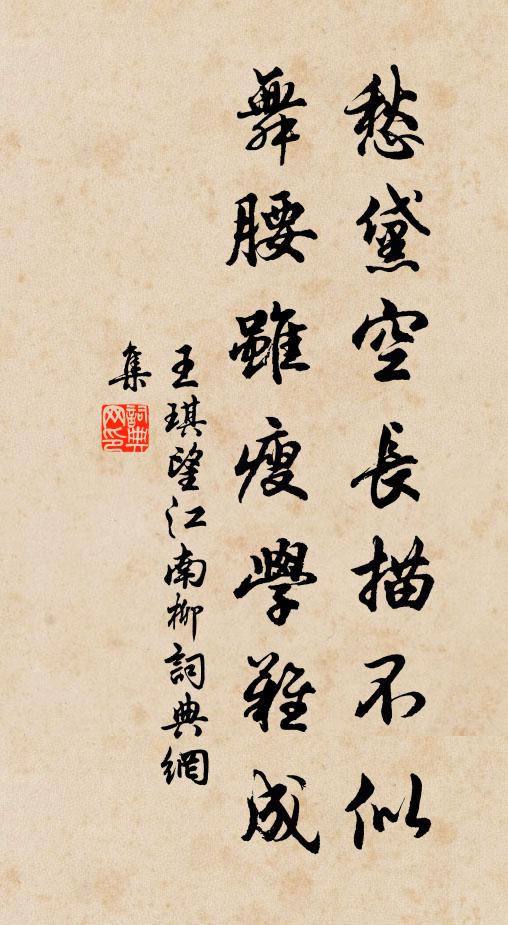 愁黛空長描不似
舞腰雖瘦學難成
王琪望江南柳詞典網
集
詞典網印